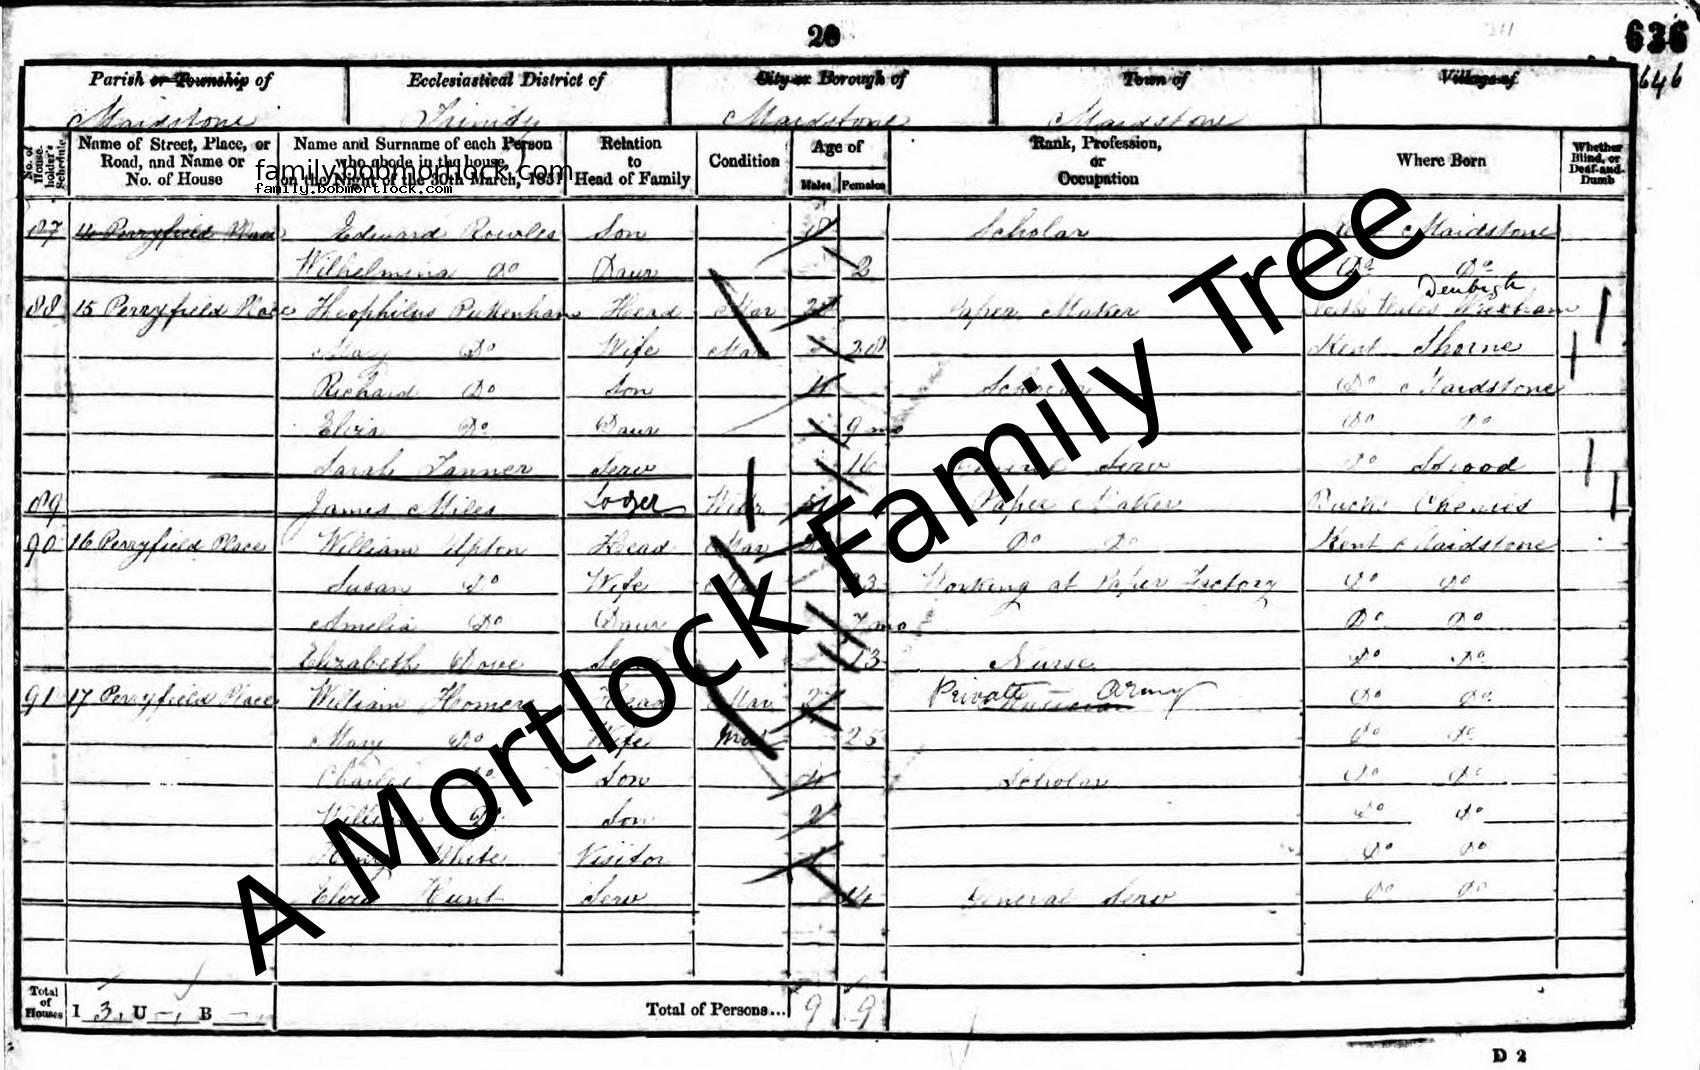 20
636
646
Parish or Township of Ecclesiastical District of City or Borough of Town of Village of
Maidstone Trinity Maidstone Maidstone
No. of House-holder's Schedule
Name of Street, Place, or Road, and Name or No. of House
Name and Surname of each Person who abode in the house, on the Night of the 30th March, 1851
Relation to Head of Family
Condition
Age of
Males Females
Rank, Profession, or Occupation
Where Born
Whether Blind, or Deaf-and-Dumb
family.bobmortlock.com
family.bobmortlock.com
87 Perryfield Place Edward Rowles Son Scholar Maidstone
Wilhelmina Do Daur 2 Do Do
Denbigh
88 15 Perryfield Place Theophilus Puttenham Head Mar Paper Maker Wales Wrexham
Mary Do Wife Mar 28 Kent Thorne
Richard Do Son 4 Scholar Do Maidstone
Eliza Do Daur 9 mo Do Do
Sarah Tanner Serv 16 Serv Do Strood
89 James Miles Lodger Widr Paper Maker Bucks Chenies
90 16 Perryfield Place William Upton Head Mar Do Do Kent Maidstone
Susan Do Wife Mar 23 Working at Paper Factory Do Do
Amelia Do Daur 7 mo Do Do
Elizabeth Dove 13 Nurse Do Do
91 17 Perryfield Place William Homer Head Mar 27 Private - Army Musician Do Do
Mary Do Wife Mar 25 Do Do
Charles Do Son 4 Scholar Do Do
William Do Son 2 Do Do
White Visitor Do Do
Eliza Hunt Serv 14 General Serv Do Do
Total of Houses I 3 U - B - Total of Persons... 9 9
D 2
A Mortlock Family Tree